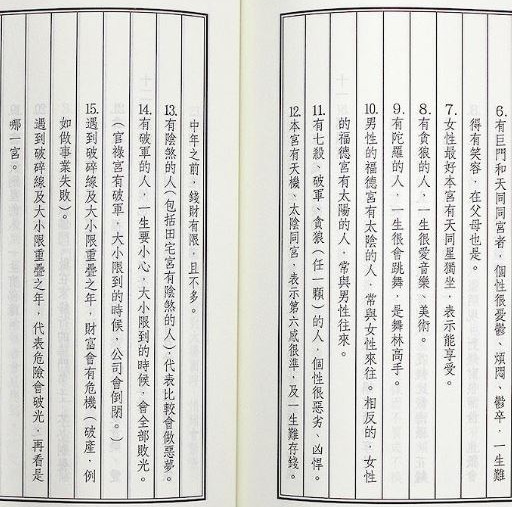 6.有巨門和天同同宮者，個性很憂鬱、煩悶、鬱卒，一生難
得有笑容，在父母也是。
7.女性最好本宮有天同星獨坐，表示能享受。
8.有貪狼的人，一生很愛音樂、美術。
9.有陀羅的人，一生很會跳舞，是舞林高手。
10.男性的福德宮有太陰的人，常與女性來往。相反的，女性
的福德宮有太陽的人，常與男性往來。
11.有七殺、破軍、貪狼（任一顆）的人，個性很惡劣、凶悍。
12.本宮有天機、太陰同宮，表示第六感很準，及一生難存錢。
中年之前，錢財有限，且不多。
13.有陰煞的人（包括田宅宮有陰煞的人），代表比較會做惡夢。
14.有破軍的人，一生要小心，大小限到的時候，會全部敗光。
（官祿宮有破軍，大小限到的時候，公司會倒閉。）
15.遇到破碎線及大小限重疊之年，財富會有危機（破產，例
如做事業失敗）。
遇到破碎線及大小限重疊之年，代表危險會破光，再看是
哪一宮。